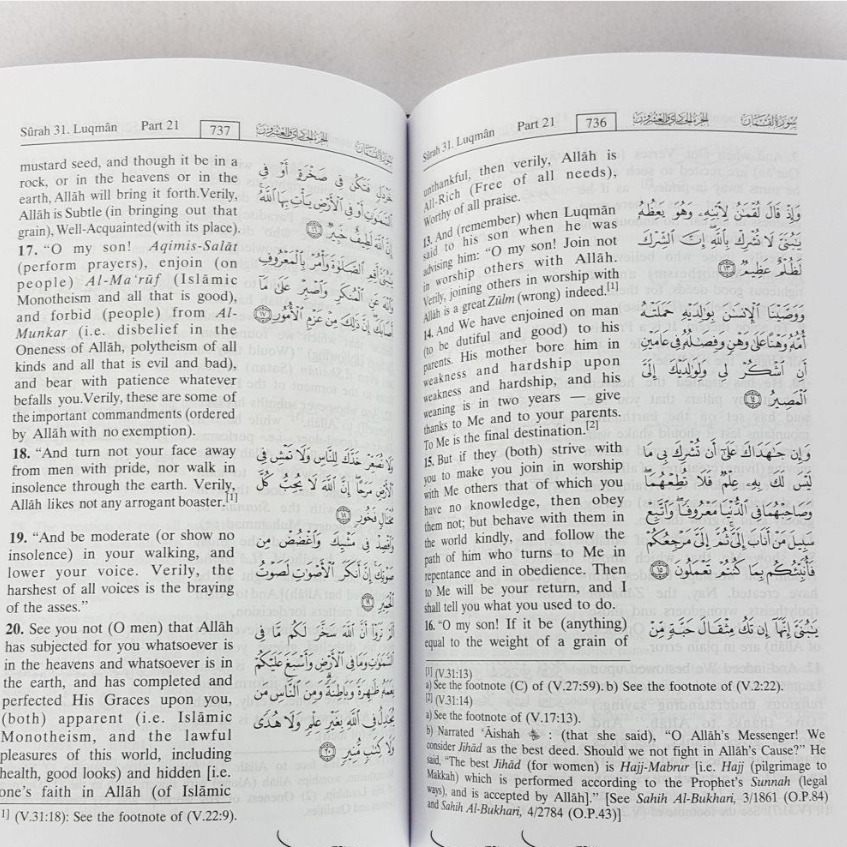 Sûrah 31. Luqmân Part 21 736 الجزء الحادي والعشرون سورة لقمان
unthankful, then verily, Allâh is
All-Rich (Free of all needs),
Worthy of all praise.
13. And (remember) when Luqmân
said to his son when he was
advising him: “O my son! Join not
in worship others with Allâh.
Verily, joining others in worship with
Allâh is a great Zûlm (wrong) indeed.[1]
14. And We have enjoined on man
(to be dutiful and good) to his
parents. His mother bore him in
weakness and hardship upon
weakness and hardship, and his
weaning is in two years — give
thanks to Me and to your parents.
To Me is the final destination.[2]
15. But if they (both) strive with
you to make you join in worship
with Me others that of which you
have no knowledge, then obey
them not; but behave with them in
the world kindly, and follow the
path of him who turns to Me in
repentance and in obedience. Then
to Me will be your return, and I
shall tell you what you used to do.
16. “O my son! If it be (anything)
equal to the weight of a grain of
وَإِذْ قَالَ لُقْمَٰنُ لِٱبْنِهِۦ وَهُوَ يَعِظُهُۥ
يَٰبُنَىَّ لَا تُشْرِكْ بِٱللَّهِ إِنَّ ٱلشِّرْكَ
لَظُلْمٌ عَظِيمٌ ١٣
وَوَصَّيْنَا ٱلْإِنسَٰنَ بِوَٰلِدَيْهِ حَمَلَتْهُ
أُمُّهُۥ وَهْنًا عَلَىٰ وَهْنٍ وَفِصَٰلُهُۥ فِى عَامَيْنِ
أَنِ ٱشْكُرْ لِى وَلِوَٰلِدَيْكَ إِلَىَّ
ٱلْمَصِيرُ ١٤
وَإِن جَٰهَدَاكَ عَلَىٰٓ أَن تُشْرِكَ بِى مَا
لَيْسَ لَكَ بِهِۦ عِلْمٌ فَلَا تُطِعْهُمَا
وَصَاحِبْهُمَا فِى ٱلدُّنْيَا مَعْرُوفًا وَٱتَّبِعْ
سَبِيلَ مَنْ أَنَابَ إِلَىَّ ثُمَّ إِلَىَّ مَرْجِعُكُمْ
فَأُنَبِّئُكُم بِمَا كُنتُمْ تَعْمَلُونَ ١٥
يَٰبُنَىَّ إِنَّهَآ إِن تَكُ مِثْقَالَ حَبَّةٍ مِّنْ
[1] (V.31:13)
a) See the footnote (C) of (V.27:59). b) See the footnote of (V.2:22).
[2] (V.31:14)
a) See the footnote of (V.17:13).
b) Narrated ‘Âishah : (that she said), “O Allâh’s Messenger! We
consider Jihâd as the best deed. Should we not fight in Allâh’s Cause?” He
said, “The best Jihâd (for women) is Hajj-Mabrur [i.e. Hajj (pilgrimage to
Makkah) which is performed according to the Prophet’s Sunnah (legal
ways), and is accepted by Allâh].” [See Sahih Al-Bukhari, 3/1861 (O.P.84)
and Sahih Al-Bukhari, 4/2784 (O.P.43)]
Sûrah 31. Luqmân Part 21 737 الجزء الحادي والعشرون سورة لقمان
mustard seed, and though it be in a
rock, or in the heavens or in the
earth, Allâh will bring it forth.Verily,
Allâh is Subtle (in bringing out that
grain), Well-Acquainted (with its place).
17. “O my son! Aqimis-Salât
(perform prayers), enjoin (on
people) Al-Ma‘rûf (Islâmic
Monotheism and all that is good),
and forbid (people) from Al-
Munkar (i.e. disbelief in the
Oneness of Allâh, polytheism of all
kinds and all that is evil and bad),
and bear with patience whatever
befalls you.Verily, these are some of
the important commandments (ordered
by Allâh with no exemption).
18. “And turn not your face away
from men with pride, nor walk in
insolence through the earth. Verily,
Allâh likes not any arrogant boaster.[1]
19. “And be moderate (or show no
insolence) in your walking, and
lower your voice. Verily, the
harshest of all voices is the braying
of the asses.”
20. See you not (O men) that Allâh
has subjected for you whatsoever is
in the heavens and whatsoever is in
the earth, and has completed and
perfected His Graces upon you,
(both) apparent (i.e. Islâmic
Monotheism, and the lawful
pleasures of this world, including
health, good looks) and hidden [i.e.
one’s faith in Allâh (of Islâmic
خَرْدَلٍ فَتَكُن فِى صَخْرَةٍ أَوْ فِى
ٱلسَّمَٰوَٰتِ أَوْ فِى ٱلْأَرْضِ يَأْتِ بِهَا ٱللَّهُ
إِنَّ ٱللَّهَ لَطِيفٌ خَبِيرٌ ١٦
يَٰبُنَىَّ أَقِمِ ٱلصَّلَوٰةَ وَأْمُرْ بِٱلْمَعْرُوفِ
وَٱنْهَ عَنِ ٱلْمُنكَرِ وَٱصْبِرْ عَلَىٰ مَآ
أَصَابَكَ إِنَّ ذَٰلِكَ مِنْ عَزْمِ ٱلْأُمُورِ ١٧
وَلَا تُصَعِّرْ خَدَّكَ لِلنَّاسِ وَلَا تَمْشِ فِى
ٱلْأَرْضِ مَرَحًا إِنَّ ٱللَّهَ لَا يُحِبُّ كُلَّ
مُخْتَالٍ فَخُورٍ ١٨
وَٱقْصِدْ فِى مَشْيِكَ وَٱغْضُضْ مِن
صَوْتِكَ إِنَّ أَنكَرَ ٱلْأَصْوَٰتِ لَصَوْتُ
ٱلْحَمِيرِ ١٩
أَلَمْ تَرَوْا أَنَّ ٱللَّهَ سَخَّرَ لَكُم مَّا فِى
ٱلسَّمَٰوَٰتِ وَمَا فِى ٱلْأَرْضِ وَأَسْبَغَ عَلَيْكُمْ
نِعَمَهُۥ ظَٰهِرَةً وَبَاطِنَةً وَمِنَ ٱلنَّاسِ مَن
يُجَٰدِلُ فِى ٱللَّهِ بِغَيْرِ عِلْمٍ وَلَا هُدًى
وَلَا كِتَٰبٍ مُّنِيرٍ ٢٠
1] (V.31:18): See the footnote of (V.22:9).